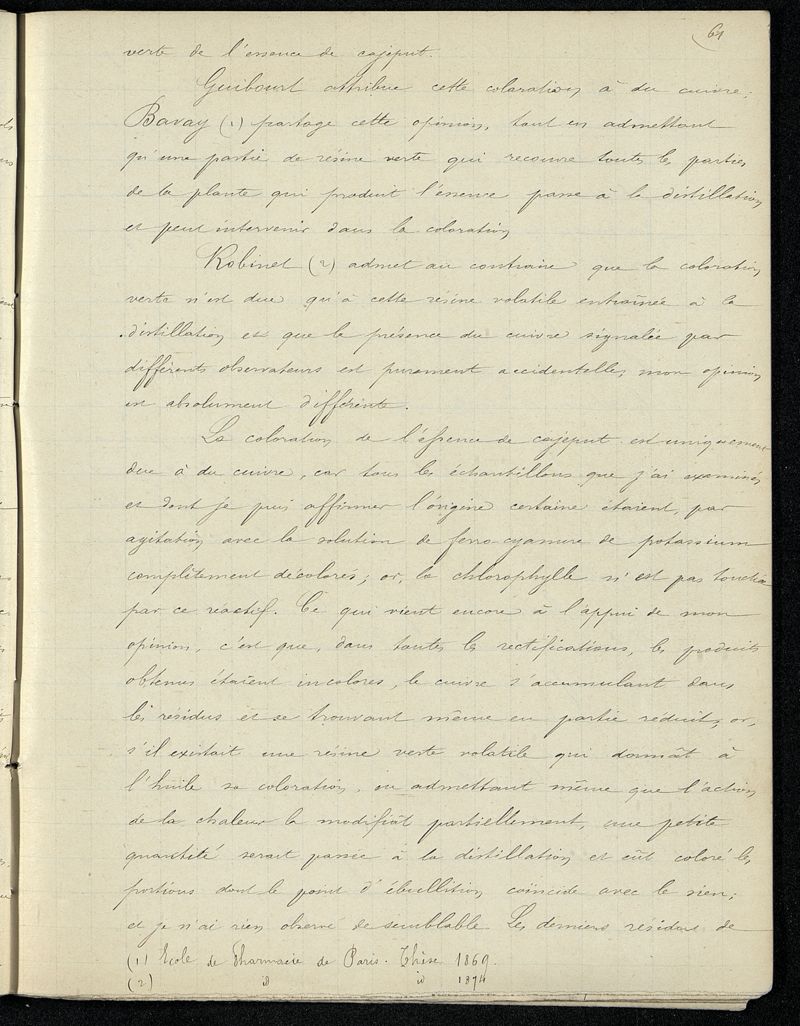 61
verte de l'essence de cajeput.
Guibourt attribue cette coloration à du cuivre;
Bavay (1) partage cette opinion, tout en admettant
qu'une partie de résine verte qui recouvre toutes les parties
de la plante qui produit l'essence passe à la distillation
et peut intervenir dans la coloration
Robinet (2) admet au contraire que la coloration
verte n'est due qu'à cette résine volatile entraînée à la
distillation et que la présence du cuivre signalée par
différents observateurs est purement accidentelle; mon opinion
est absolument différente.
La coloration de l'essence de cajeput est uniquement
due à du cuivre, car tous les échantillons que j'ai examinés
et dont je puis affirmer l'origine certaine étaient, par
agitation avec la solution de ferro-cyanure de potassium
complètement décolorés; or, la chlorophylle n'est pas touchée
par ce réactif. Ce qui vient encore à l'appui de mon
opinion, c'est que, dans toutes les rectifications, les produits
obtenus étaient incolores, le cuivre s'accumulant dans
les résidus et se trouvant même en partie réduit; or,
s'il existait une résine verte volatile qui donnât à
l'huile sa coloration, en admettant même que l'action
de la chaleur la modifiât partiellement, une petite
quantité serait passée à la distillation et eût coloré les
portions dont le point d'ébullition coïncide avec le sien;
et je n'ai rien observé de semblable. Les derniers résidus de
(1) Ecole de Pharmacie de Paris. Thèse 1869.
(2) id id 1874